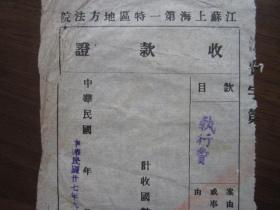 江蘇上海第一特區地方法院
收款證
款目
執行費
案由
或事
由
計收國幣
中華民國 年
中華民國廿七年